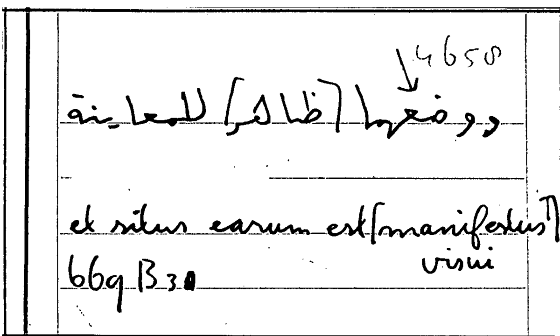 4658
ووضعها [ظاهر] للمعاينة
et situs earum est [manifestus]
visui
669 B 30